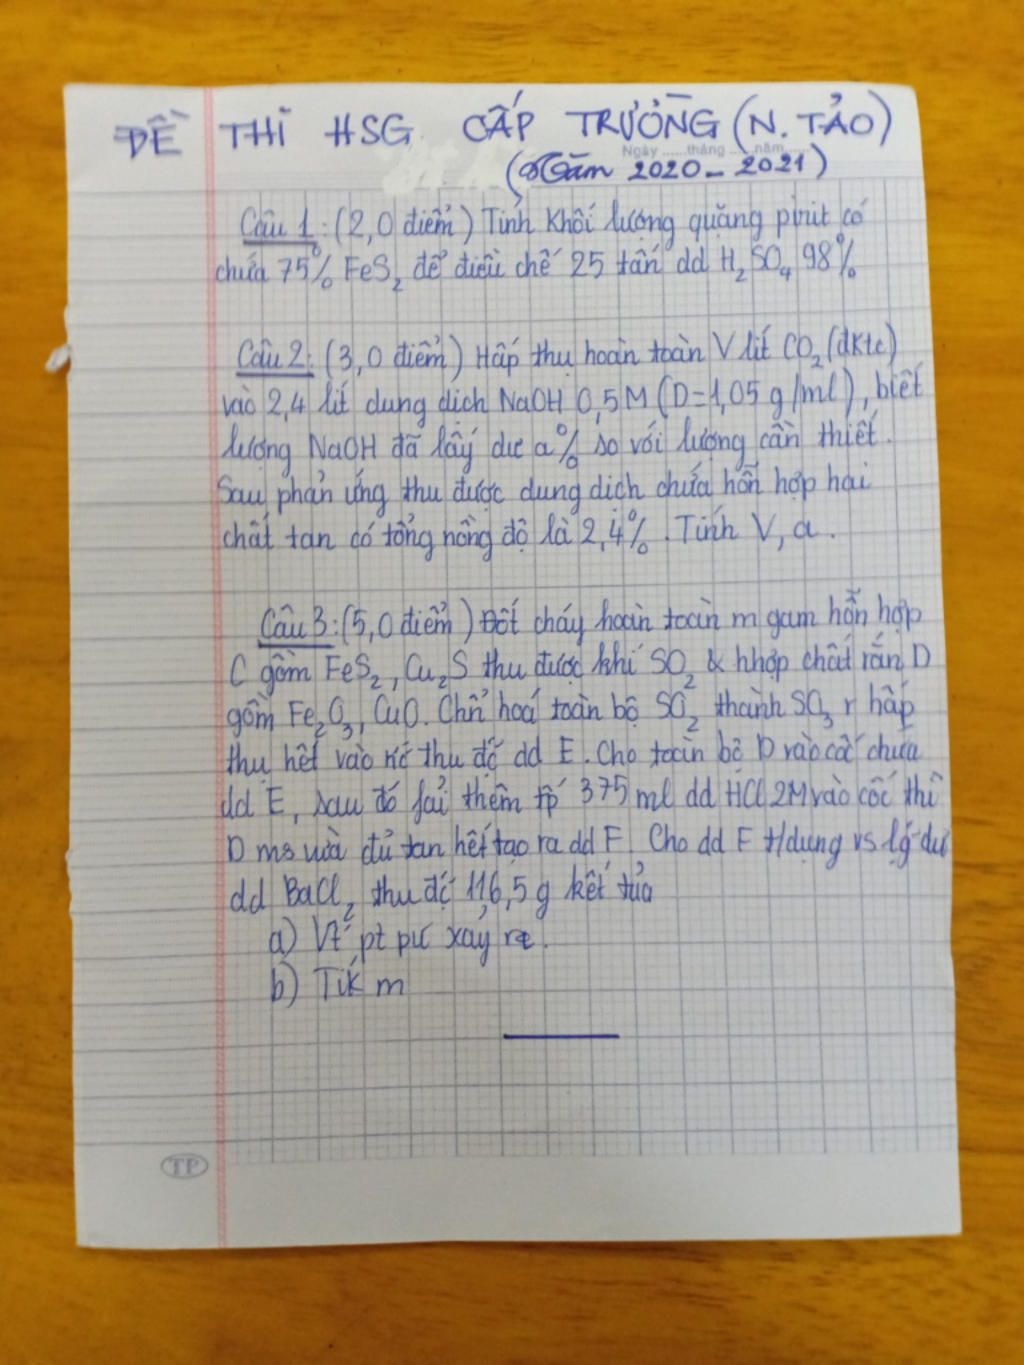 ĐỀ THI HSG CẤP TRƯỜNG (N. TẢO)
Ngày ......tháng ......năm......
(Năm 2020 - 2021)
Câu 1: (2,0 điểm) Tính khối lượng quặng pirit có
chứa 75% FeS₂ để điều chế 25 tấn dd H₂SO₄ 98%
Câu 2: (3,0 điểm) Hấp thụ hoàn toàn V lít CO₂ (đktc)
vào 2,4 lít dung dịch NaOH 0,5M (D=1,05 g/ml), biết
lượng NaOH đã lấy dư a% so với lượng cần thiết.
Sau phản ứng thu được dung dịch chứa hỗn hợp hai
chất tan có tổng nồng độ là 2,4%. Tính V, a.
Câu 3: (5,0 điểm) Đốt cháy hoàn toàn m gam hỗn hợp
C gồm FeS₂, Cu₂S thu được khí SO₂ & hhợp chất rắn D
gồm Fe₂O₃, CuO. Chn̉ hoá toàn bộ SO₂ thành SO₃ r hấp
thụ hết vào nc thu đc dd E. Cho toàn bộ D vào cốc chứa
dd E, sau đó fải thêm tp 375 ml dd HCl 2M vào cốc thì
D ms vừa đủ tan hết tạo ra dd F. Cho dd F t/dụng vs lg dư
dd BaCl₂ thu đc 116,5 g kết tủa
a) Vt́ pt pư xảy ra.
b) Tík m
TP